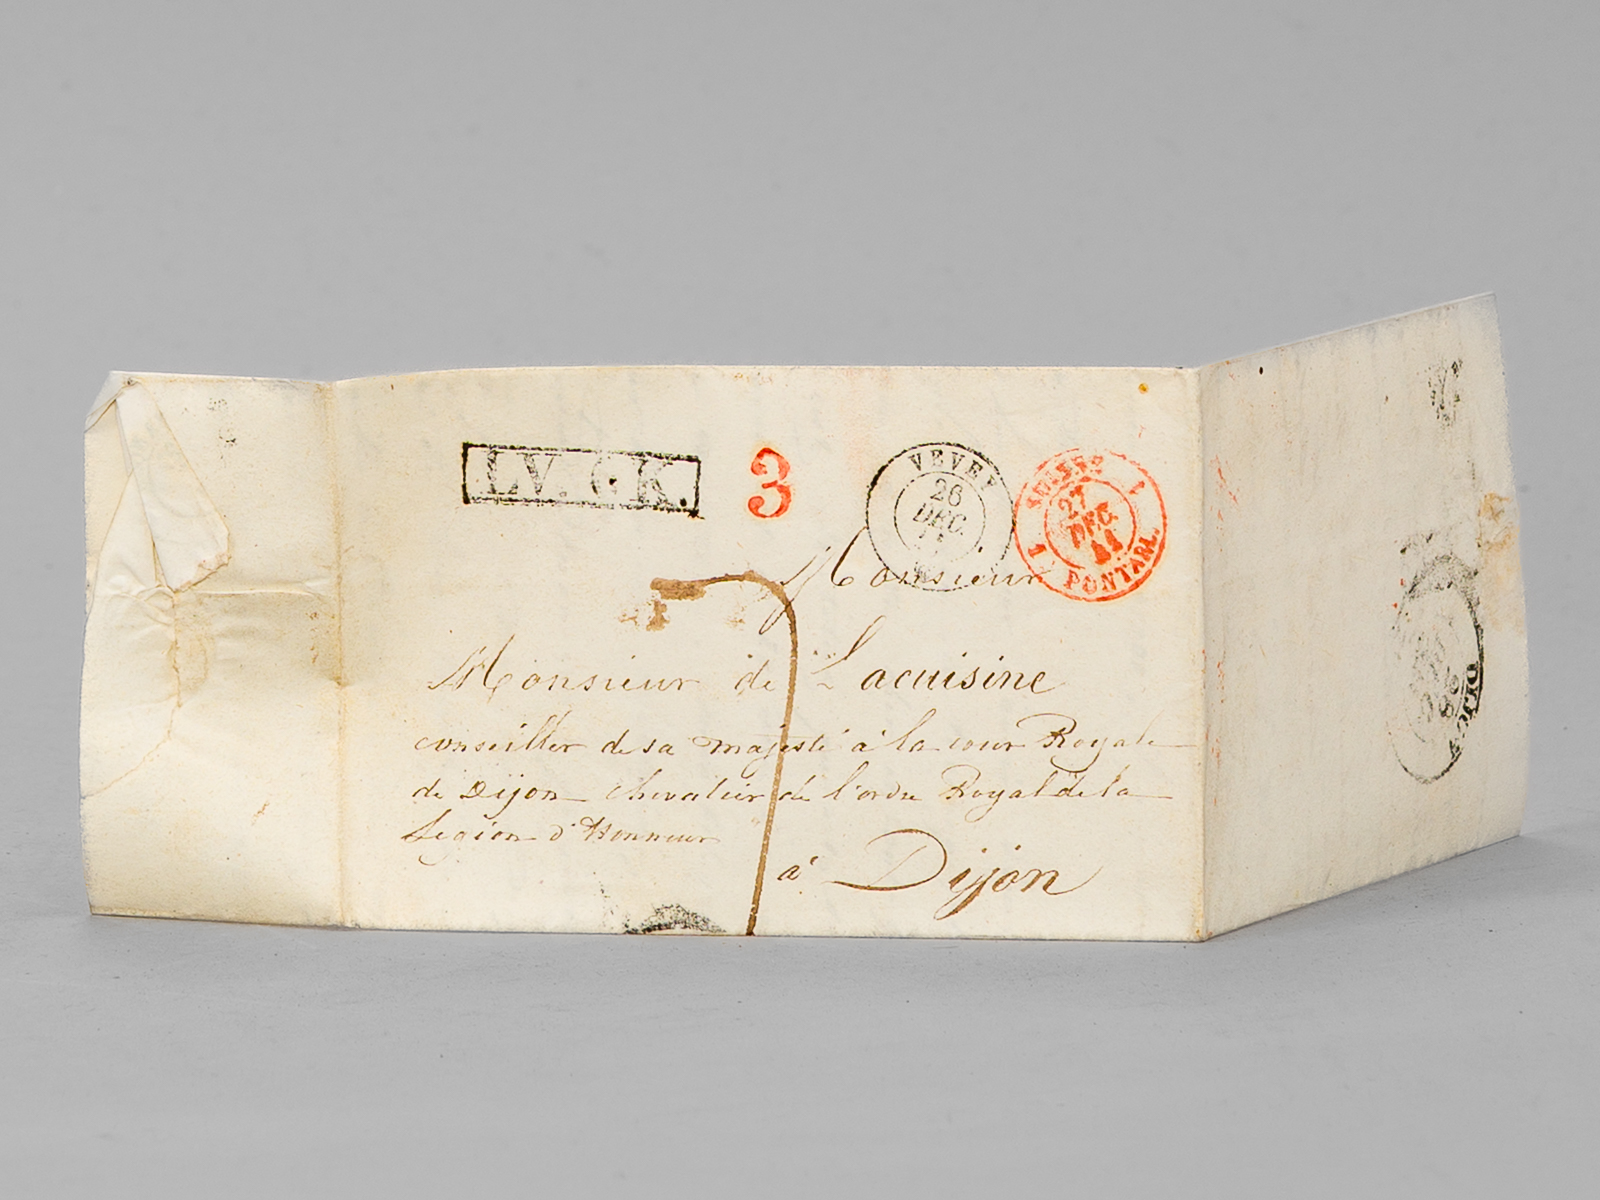 LV. CK.
3
VEVEY
26
DEC.
SUISSE
1 1
27
DEC.
41
PONTARL.
Monsieur
Monsieur de Lacuisine
conseiller de sa majesté à la cour Royale
de Dijon chevalier de l'ordre Royal de la
Legion d'Honneur
à Dijon
7
DIJON
28